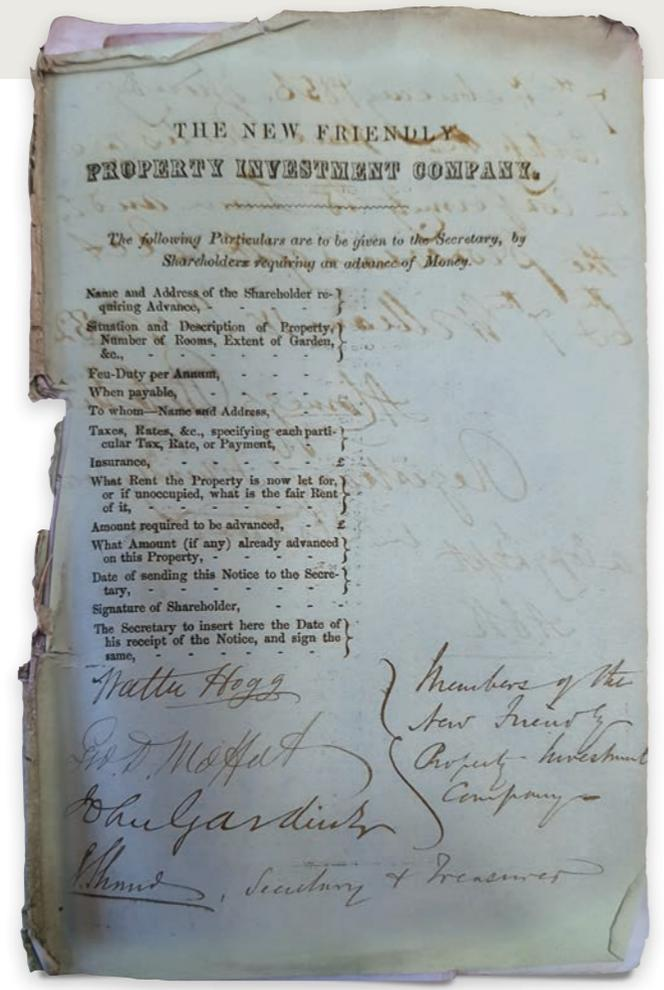 THE NEW FRIENDLY
PROPERTY INVESTMENT COMPANY.
The following Particulars are to be given to the Secretary, by
Shareholders requiring an advance of Money.
Name and Address of the Shareholder re-
quiring Advance, - - - -
Situation and Description of Property,
Number of Rooms, Extent of Garden,
&c., - - - - - -
Feu-Duty per Annum, - - - -
When payable, - - - - -
To whom—Name and Address, - - -
Taxes, Rates, &c., specifying each parti-
cular Tax, Rate, or Payment, - -
Insurance, - - - - - £
What Rent the Property is now let for,
or if unoccupied, what is the fair Rent
of it, - - - - - -
Amount required to be advanced, - £
What Amount (if any) already advanced
on this Property, - - - -
Date of sending this Notice to the Secre-
tary, - - - - - -
Signature of Shareholder, - - -
The Secretary to insert here the Date of
his receipt of the Notice, and sign the
same, - - - - - -
Walter Hogg
Geo. D. Moffat
John Gardiner
Members of the
New Friendly
Property Investment
Company
Shand, Secretary & Treasurer